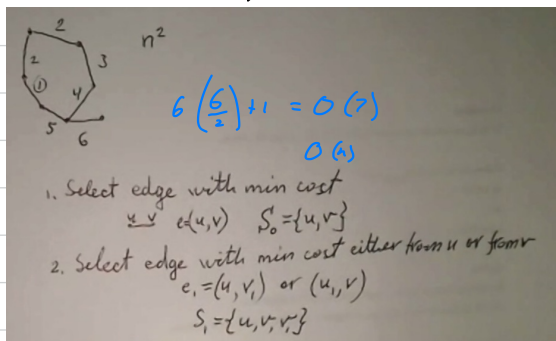 2
n²
2
3
①
4
5
6
6 (6/2) +1 = O(7)
O(n)
1. Select edge with min cost
u v e(u,v) S₀={u,v}
2. Select edge with min cost either from u or from v
e₁=(u,v₁) or (u₁,v)
S₁={u,v,v₁}